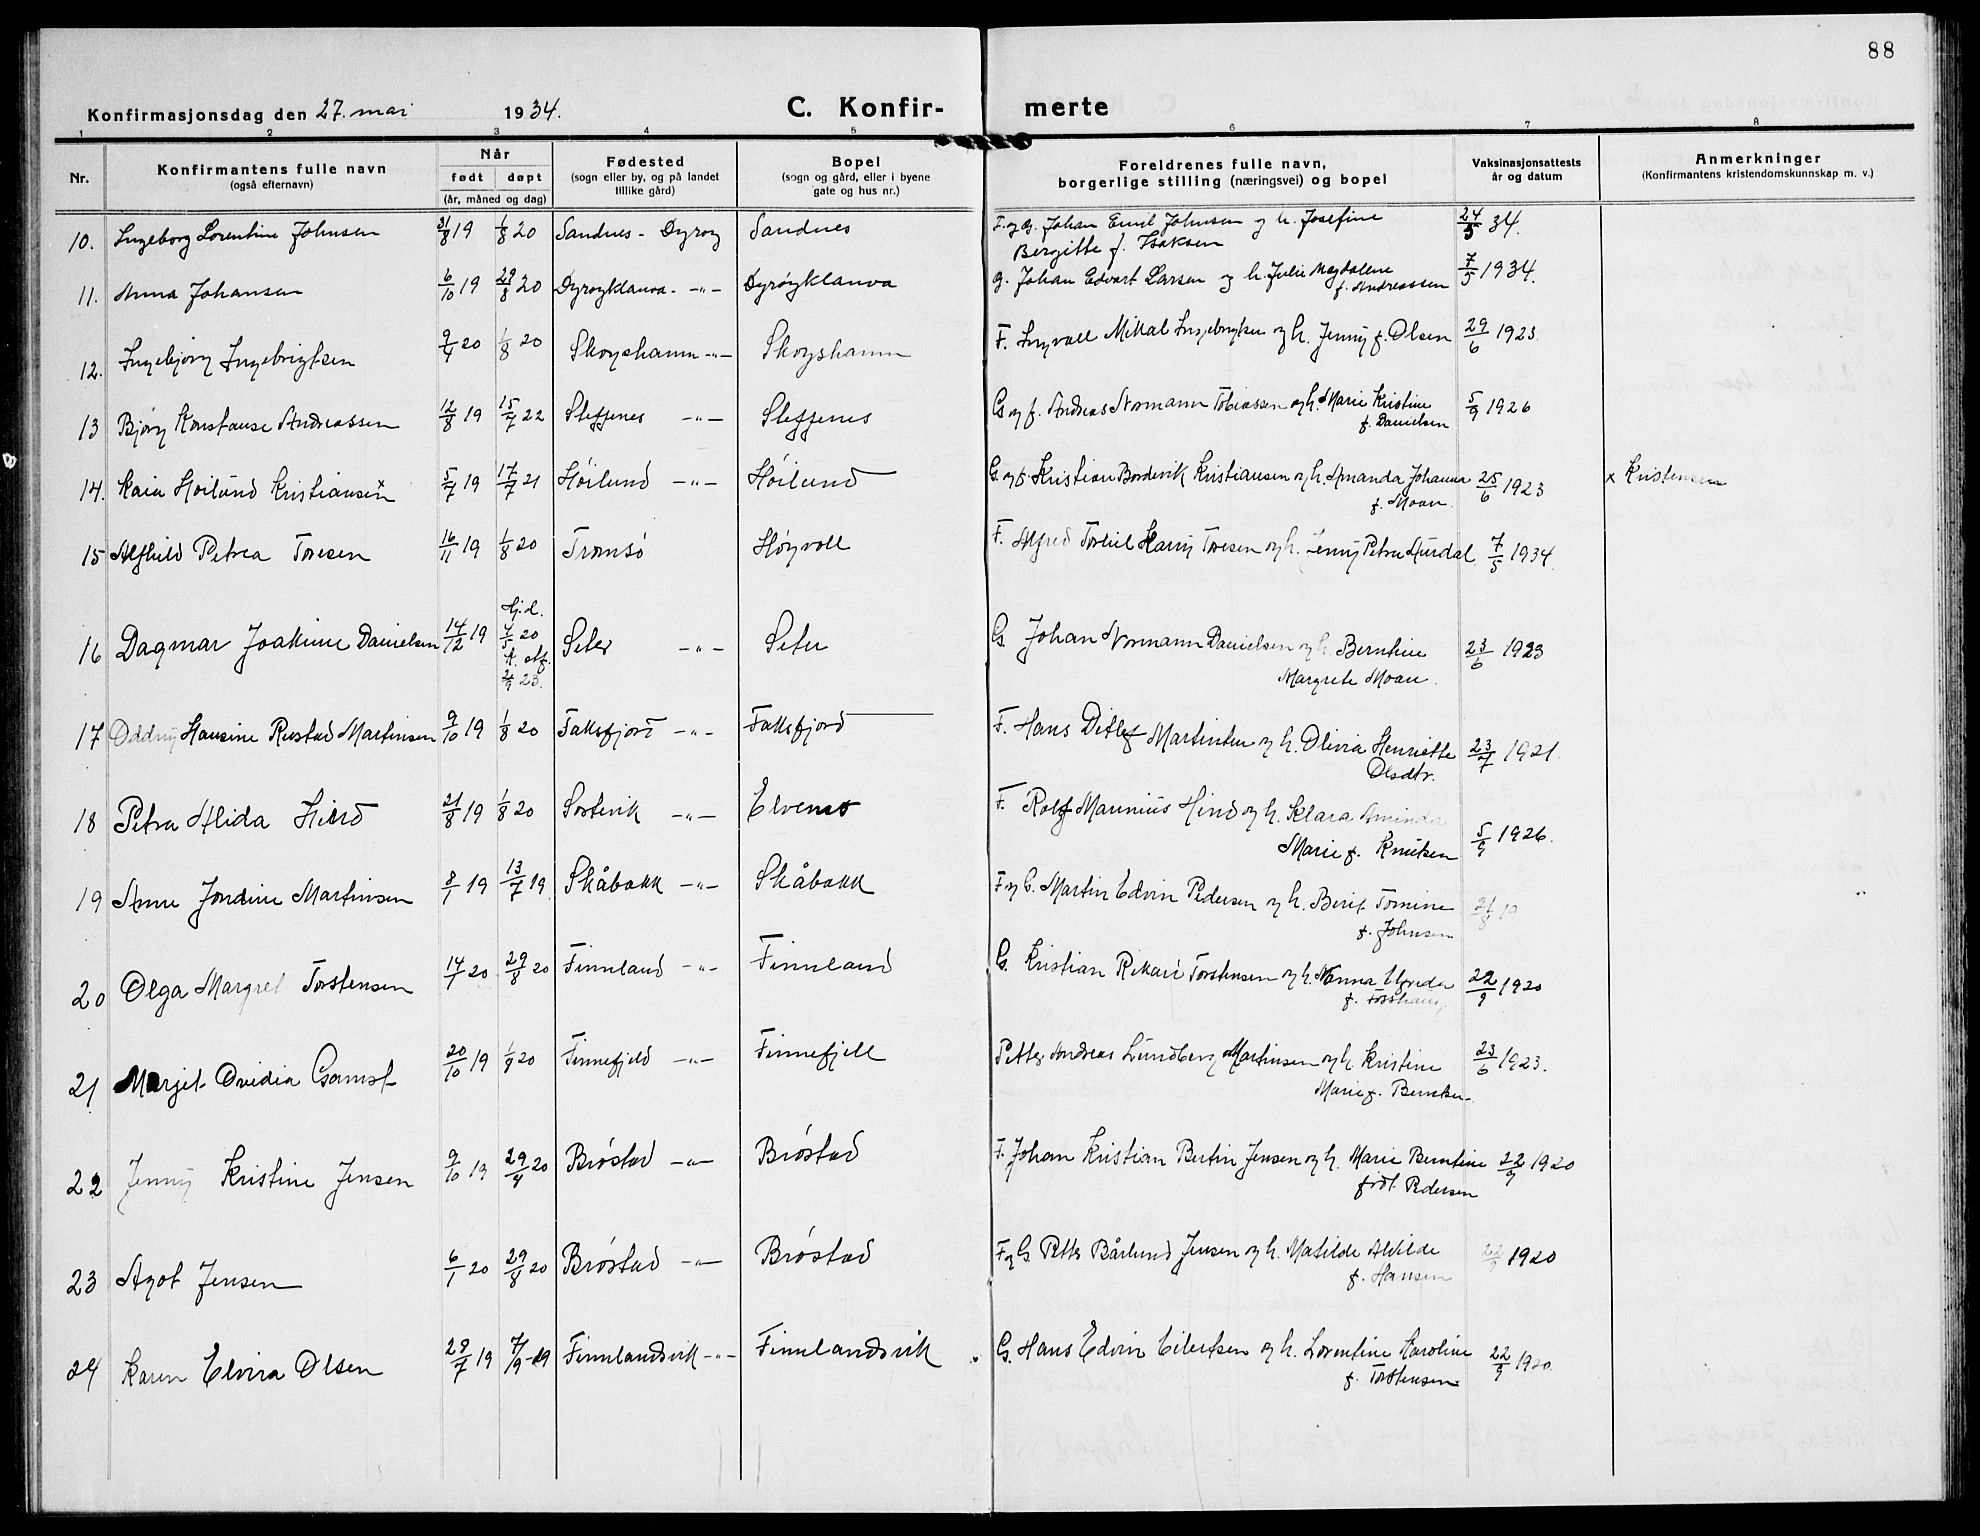 88
Konfirmasjonsdag den 27. mai 1934. C. Konfir- merte
1 2 3 4 5 6 7 8
Nr. Konfirmantens fulle navn (også efternavn) Når født døpt (år, måned og dag) Fødested (sogn eller by, og på landet tillike gård) Bopel (sogn og gård, eller i byene gate og hus nr.) Foreldrenes fulle navn, borgerlige stilling (næringsvei) og bopel Vaksinasjonsattests år og datum Anmerkninger (Konfirmantens kristendomskunnskap m. v.)
10. Ingeborg Lorentine Johnsen 31/8 19 1/8 20 Sandnes - Dyrøy Sandnes F. og G. Johan Emil Johnsen og h. Josefine 24/5 34.
Bergitte f. Isaksen
11. Anna Johansen 6/10 19 29/8 20 Dyrøyklauva -"- Dyrøyklauva G. Johan Edvart Larsen og h. Julie Magdalene 7/5 1934.
f. Andreassen
12. Ingebjørg Ingebrigtsen 9/4 20 1/8 20 Skogshamn -"- Skogshamn F. Ingvall Mikal Ingebrigtsen og h. Jenny f. Olsen 29/6 1923
13 Bjørg Konstanse Andreassen 12/8 19 15/7 22 Sleggenes -"- Sleggenes G og f. Andreas Normann Tobiassen og h. Marie Kristine 5/9 1926
f. Danielsen
14. Kaia Høilund Kristiansen x 5/7 19 17/7 21 Høilund -"- Høilund G og F Kristian Bordevik Kristiansen og h. Amanda Johanna 25/6 1923 x Kristensen
f. Moan
15 Alfhild Petrea Toresen 16/11 19 1/8 20 Tromsø Høgvoll F. Alfred Torleil Harry Toresen og h. Jenny Petra Aurdal 7/5 1934.
16 Dagmar Joakime Danielsen 14/12 19 Hj.d. 4/5 20 st. 2/9 23. Seter -"- Seter G. Johan Normann Danielsen og h. Berntine 23/6 1923
Margrete Moan.
17 Oddny Hansine Rustad Martinsen 9/10 19 1/8 20 Faksfjord -"- Faksfjord F. Hans Ditlef Martinsen og h. Olivia Henriette 23/7 1921.
Olsdtr.
18 Petra Alida Hind 21/8 19 1/8 20 Sørtevik -"- Elvenes F. Rolf Marinius Hind og h. Klara Aminda
Marie f. Knutsen 5/9 1926.
19 Anne Jordine Martinsen 8/1 19 13/7 19 Skåbakk -"- Skåbakk F og G. Martin Edvin Pedersen og h. Berit Tomine 21/8 19
f. Johnsen
20 Olga Margret Torstensen 14/7 20 29/8 20 Finnland -"- Finnland G. Kristian Rikard Torstensen og h. Nanna Ufrida 22/9 1920
f.
21 Marjet Ovidia Gamst 20/10 19 1/9 20 Finnefjeld -"- Finnefjell Petter Andreas Lundberg Martinsen og h. Kristine 23/6 1923.
Marie f. Berntsen
22 Jenny Kristine Jensen 9/10 19 29/4 20 Brøstad -"- Brøstad F. Johan Kristian Bertin Jensen og h. Marie Berntine 22/9 1920
født Pedersen
23 Agot Jensen 6/1 20 29/8 20 Brøstad -"- Brøstad F og G Petter Bårlund Jensen og h. Matilde Alvilde 22/9 1920
f. Hansen
24 Karen Elvira Olsen 29/7 19 7/9-19 Finnlandsvik -"- Finnlandsvik G. Hans Edvin Eilertsen og h. Lorentine Karoline 22/9 1920.
f. Torstensen